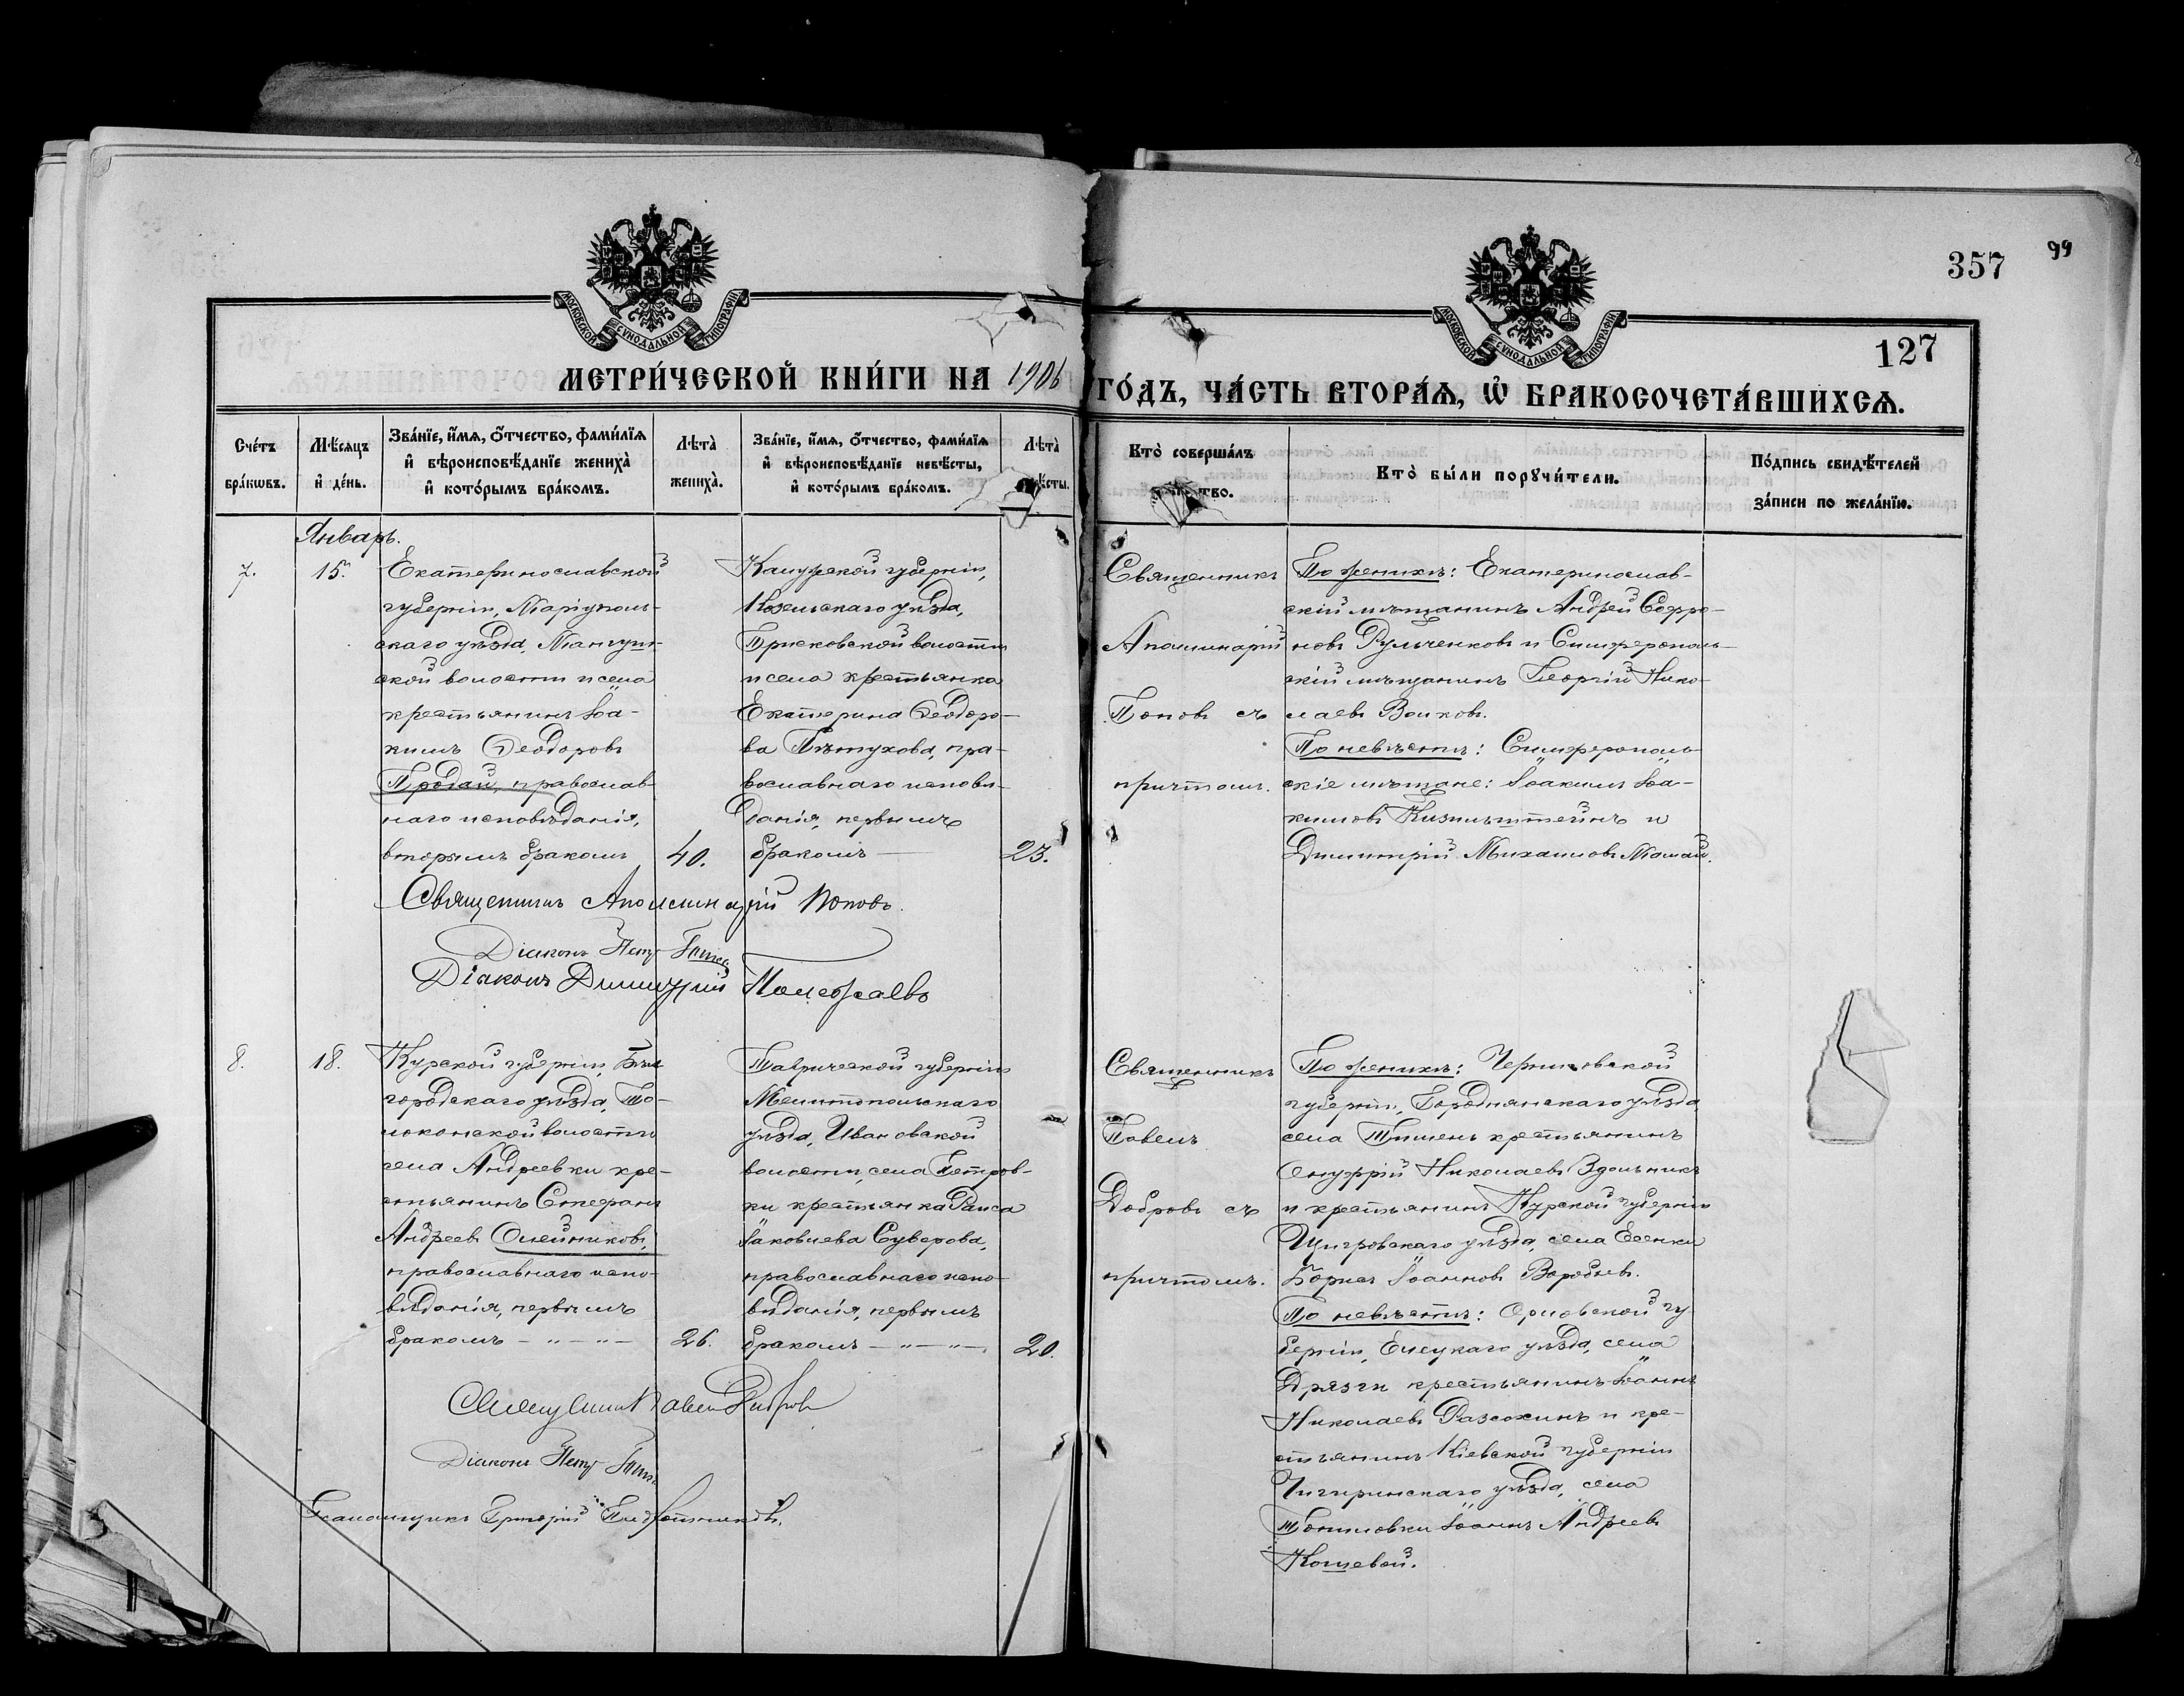 357
99
127
МОСКОВСКОЙ СУНОДАЛЬНОЙ ТИПОГРАФІИ
МОСКОВСКОЙ СУНОДАЛЬНОЙ ТИПОГРАФІИ
МЕТРИ́ЧЕСКОЙ КНИ́ГИ НА 1906 ГО́ДЪ, ЧА́СТЬ ВТОРА́Ѧ, Ѽ БРАКОСОЧЕТА́ВШИХСѦ.
Сче́тъ
бра́кѡвъ.
Мѣ́сѧцъ
и҆ де́нь.
Зва́нїе, и҆́мѧ, ѻ҆́тчество, фами́лїѧ
и҆ вѣроисповѣ́данїе жениха̀
и҆ кото́рымъ бра́комъ.
Лѣта̀
жениха̀.
Зва́нїе, и҆́мѧ, ѻ҆́тчество, фами́лїѧ
и҆ вѣроисповѣ́данїе невѣ́сты,
и҆ кото́рымъ бра́комъ.
Лѣта̀
Кто̀ соверша́лъ
Кто̀ бы́ли порꙋчи́тели.
По́дпись свидѣ́телей
за́писи по жела́нїю.
Январь.
7.
15.
Екатеринославской
губерніи, Маріуполь-
скаго уѣзда, Мангуш-
ской волости и села
крестьянинъ Іоа-
кимъ Ѳеодоровъ
Продай, православ-
наго исповѣданія,
вторымъ бракомъ
40.
Калужской губерніи,
Козельскаго уѣзда,
волости
и села крестьянка
Екатерина Ѳеодоро-
ва Пѣтухова, пра-
вославнаго исповѣ-
данія, первымъ
бракомъ —
23.
Священникъ
Аполинарій
Поповъ съ
причтомъ.
По женихѣ: Екатеринослав-
скій мѣщанинъ Андрей Софро-
новъ Рульченковъ и Симферополь-
скій мѣщанинъ Георгій Нико-
лаевъ Волковъ.
По невѣстѣ: Симферополь-
скіе мѣщане: Іоакимъ Іоа-
кимовъ и
Димитрій Михаиловъ
Священникъ Аполинарій Поповъ.
Діаконъ Петръ
Діаконъ Димитрій
8.
18.
Курской губерніи, Бѣл-
городскаго уѣзда, То-
локонской волости
села Андреевки кре-
стьянинъ Стефанъ
Андреевъ Олейниковъ,
православнаго испо-
вѣданія, первымъ
бракомъ — " — " —
26.
Таврической губерніи
Мелитопольскаго
уѣзда, Ивановской
волости, села Петров-
ки крестьянка Раиса
Іаковлева Суверова,
православнаго испо-
вѣданія, первымъ
бракомъ — " — " —
20.
Священникъ
Павелъ
Добровъ съ
причтомъ.
По женихѣ: Черниговской
губерніи, Городнянскаго уѣзда
села крестьянинъ
Онуфрій Николаевъ Здольникъ
и крестьянинъ Курской губерніи
Щигровскаго уѣзда, села Есенки
Борисъ Іоанновъ Воробьевъ.
По невѣстѣ: Орловской гу-
берніи, Елецкаго уѣзда, села
Дрязги крестьянинъ Іоаннъ
Николаевъ Разсохинъ и кре-
стьянинъ Кіевской губерніи
Чигиринскаго уѣзда, села
Іоаннъ Андреевъ
Кошевой.
Священникъ Павелъ Добровъ
Діаконъ Петръ
Псаломщикъ Григорій